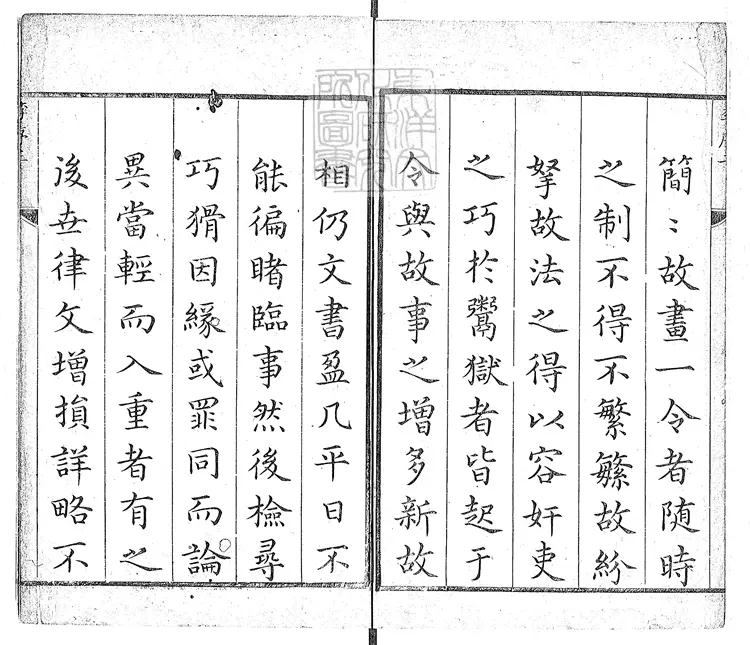 簡〻故畫一令者随時
之制不得不繁緐故紛
拏故法之得以容奸吏
之巧於鬻獄者皆起于
令與故事之增多新故
相仍文書盈几平日不
能徧睹臨事然後檢尋
巧猾因緣或罪同而論
異當輕而入重者有之
後世律文增損詳略不